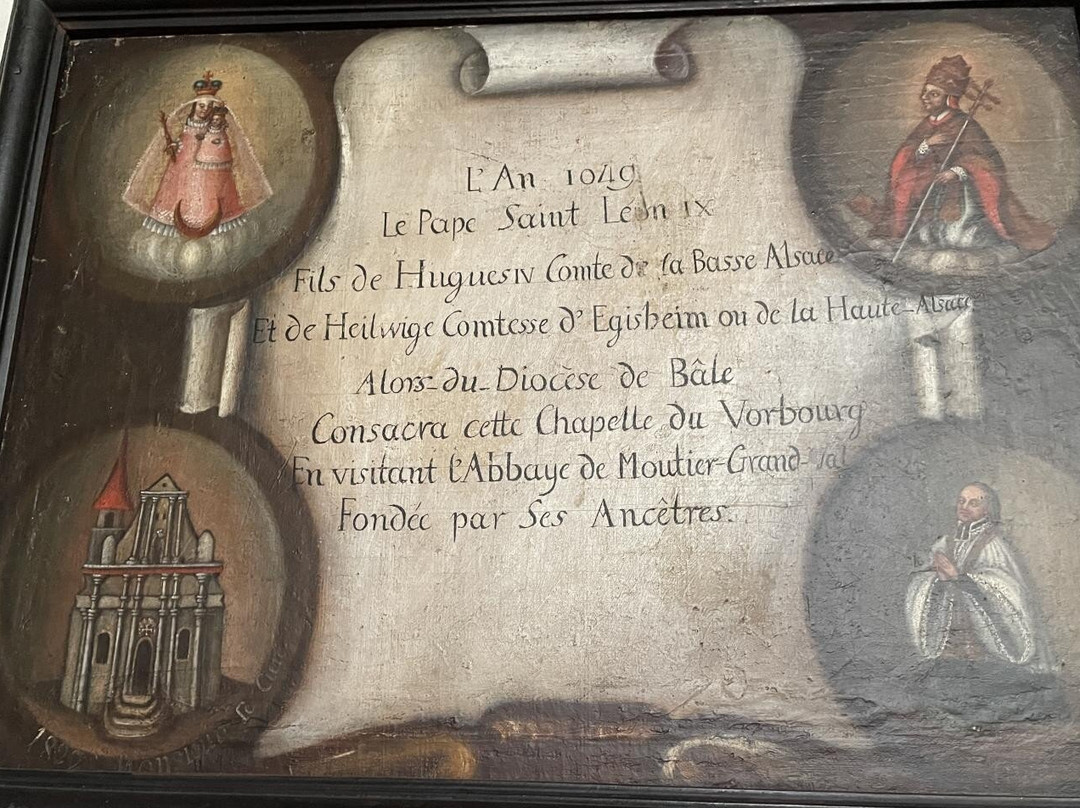 L'An 1049
Le Pape Saint Léon IX
Fils de Hugues IV Comte de la Basse Alsace
Et de Heilwige Comtesse d'Egisheim ou de la Haute-Alsace
Alors-du-Diocèse de Bâle
Consacra cette Chapelle du Vorbourg
En visitant l'Abbaye de Moutier-Grand-val
Fondée par Ses Ancêtres.